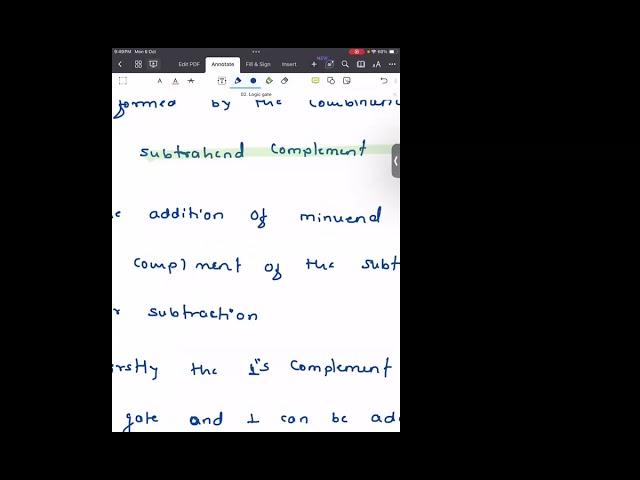 9:49PM Mon 6 Oct
60%
Edit PDF Annotate Fill & Sign Insert NEW
02. Logic gate
formed by the combinati
subtrahend complement
addition of minuend
compl ment of the subt
subtraction
irstly the 1's complement
gate and 1 can be ad